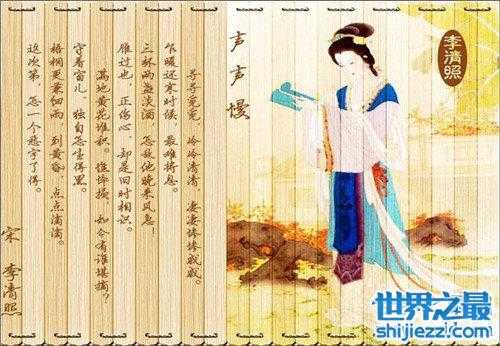 李清照
声声慢
寻寻觅觅，冷冷清清，凄凄惨惨戚戚。
乍暖还寒时候，最难将息。
三杯两盏淡酒，怎敌他晚来风急！
雁过也，正伤心，却是旧时相识。
满地黄花堆积。憔悴损，如今有谁堪摘？
守着窗儿，独自怎生得黑。
梧桐更兼细雨，到黄昏，点点滴滴。
这次第，怎一个愁字了得。
宋 李清照
世界之最
shijiezzl.com